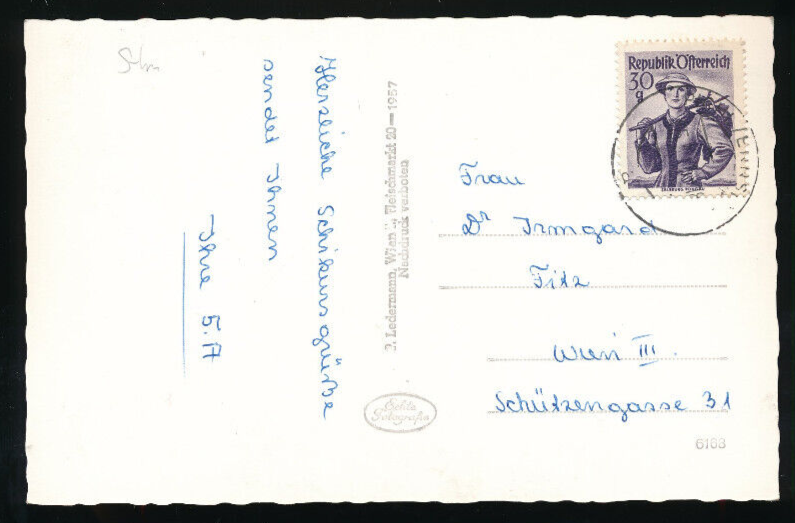 Herzliche Schikursgrüße
sendet Ihnen
Ihre 5.A
P. Ledermann, Wien I., Fleischmarkt 20—1957
Nachdruck verboten
Echte
Fotografie
Republik Österreich
30
g
Frau
Dr Irmgard
Fitz
Wien III.
Schützengasse 31
6183